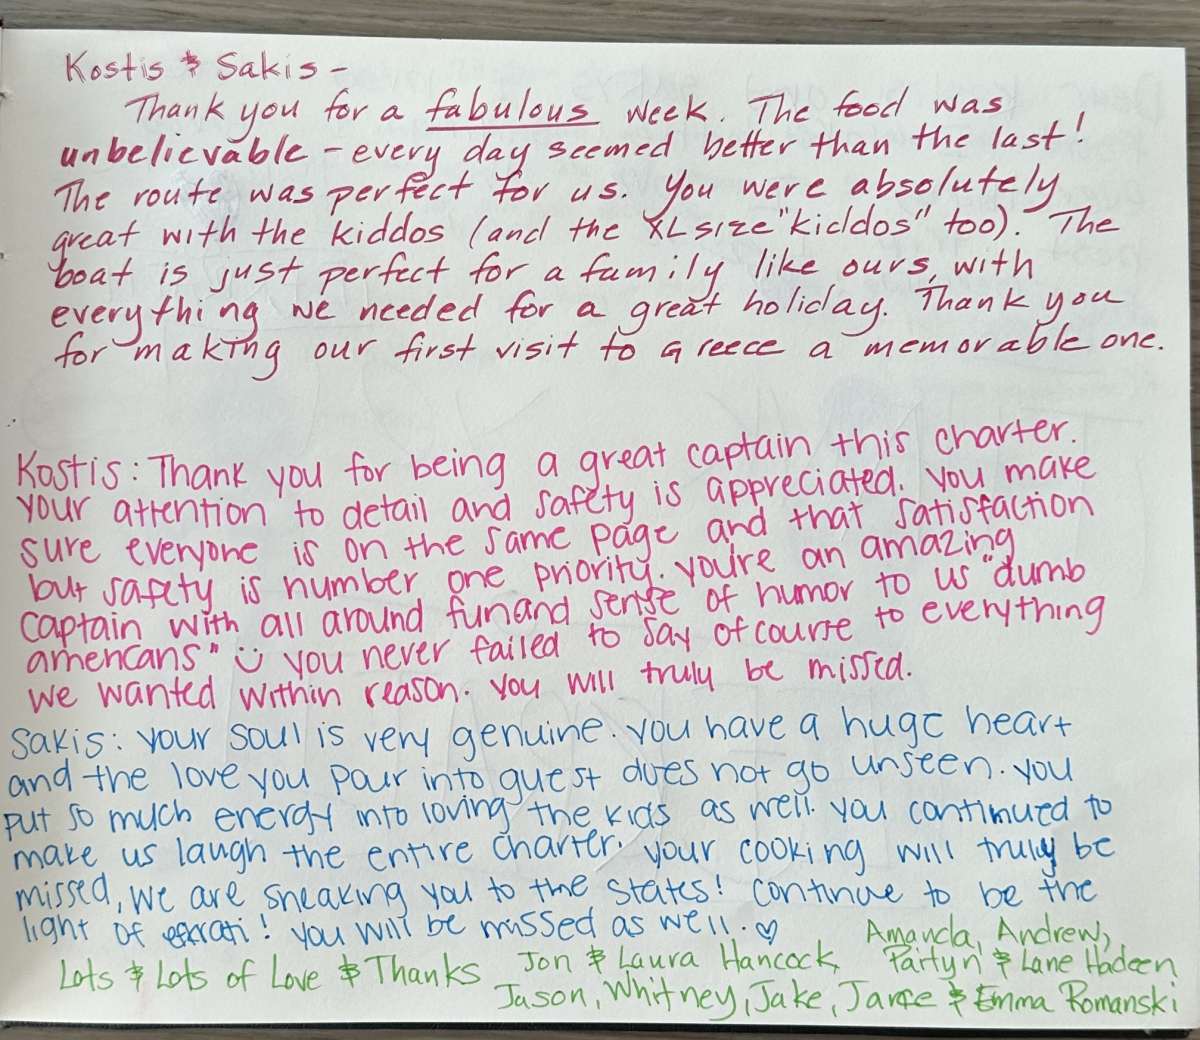 Kostis & Sakis -
Thank you for a fabulous week. The food was
unbelievable - every day seemed better than the last!
The route was perfect for us. You were absolutely
great with the kiddos (and the XL size "kiddos" too). The
boat is just perfect for a family like ours, with
everything we needed for a great holiday. Thank you
for making our first visit to Greece a memorable one.
Kostis: Thank you for being a great captain this charter.
your attention to detail and safety is appreciated. you make
sure everyone is on the same page and that satisfaction
but safety is number one priority. you're an amazing
captain with all around fun and sense of humor to us "dumb
americans" :) you never failed to say of course to everything
we wanted within reason. you will truly be missed.
Sakis: your soul is very genuine. you have a huge heart
and the love you pour into guest does not go unseen. you
put so much energy into loving the kids as well. you continued to
make us laugh the entire charter. your cooking will truly be
missed, we are sneaking you to the states! continue to be the
light of! you will be missed as well. ♡
Amanda, Andrew,
Lots & Lots of Love & Thanks Jon & Laura Hancock, & Lane Hadeen
Jason, Whitney, Jake, & Emma Romanski